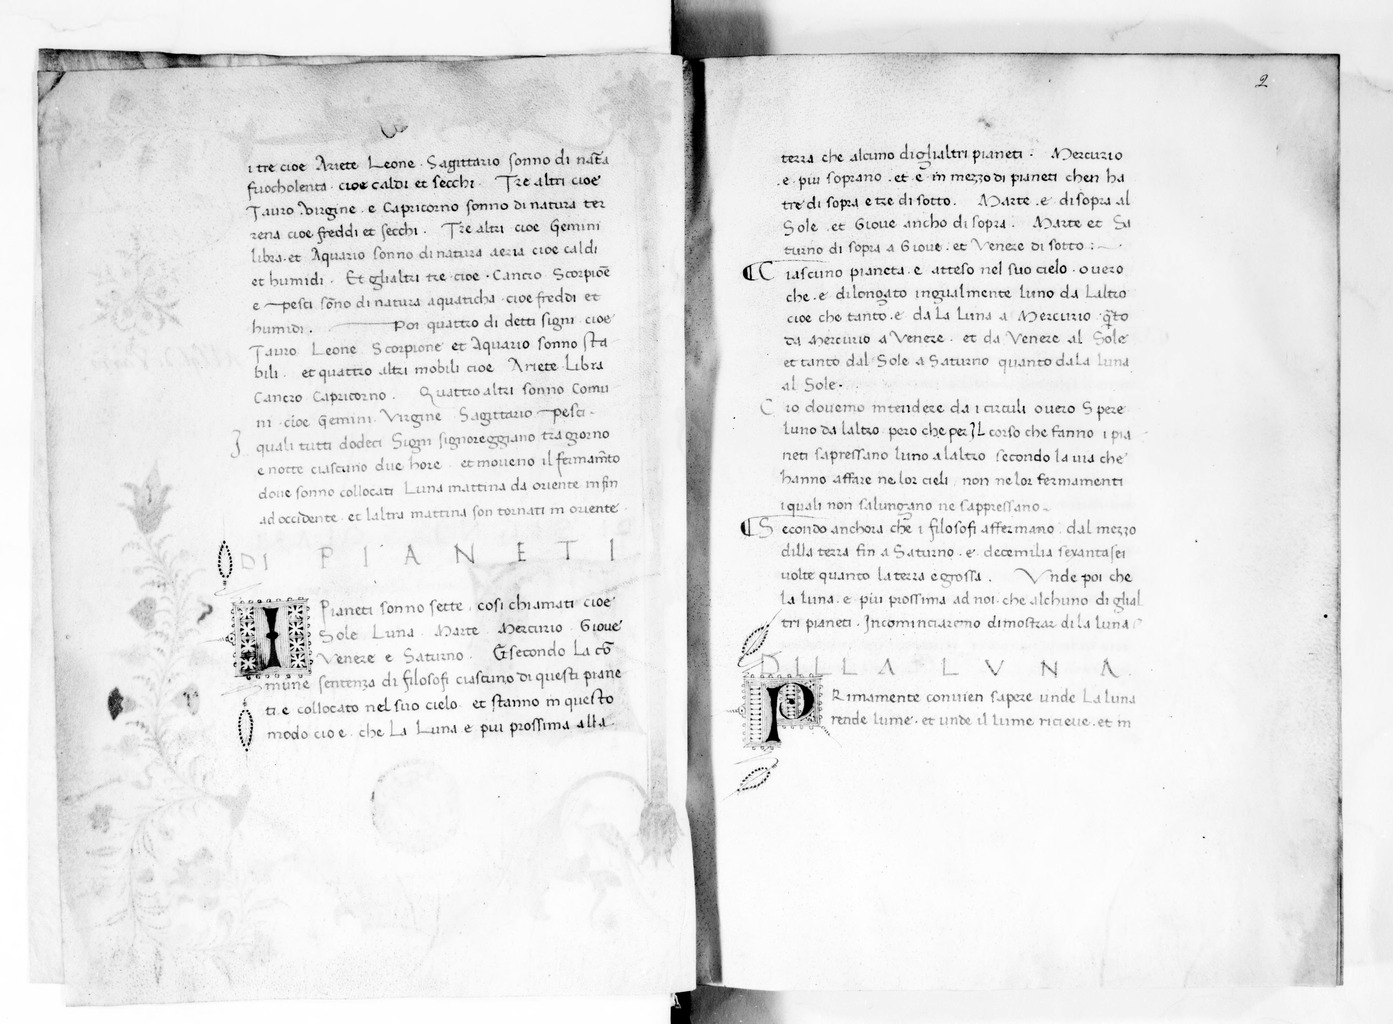 i tre cioe Ariete Leone · Sagittario sonno di nat̄a
fuocholenta · cioe caldi et secchi · Tre altri cioe
Tauro Virgine · e Capricorno sonno di natura ter
rena cioe freddi et secchi · Tre altri cioe Gemini
libra · et Aquario sonno di natura aeria cioe caldi
et humidi · Et gli altri tre · cioe · Cancro Scorpioē
e Pesci sōno di natura aquaticha · cioe freddi et
humidi . Poi quattro di detti signi cioe
Tauro Leone Scorpione et Aquario sonno sta
bili . et quattro altri mobili cioe Ariete Libra
Cancro Capricorno . Quattro altri sonno Comu
ni · cioe gemini · Virgine Sagittario Pesci ·
I quali tutti dodeci Signi signoreggiano tra giorno
e notte ciascuno due hore · et moveno il fermam̄to
dove sonno collocati Luna mattina da oriente in fin
ad occidente · et laltra mattina son tornati in oriente ·
DI PIANETI
I Pianeti sonno sette · cosi chiamati cioe
Sole Luna · Marte Mercurio Giove
Venere e Saturno . E secondo la cō
mune sentenza di filosofi ciascuno di questi piane
ti · e collocato nel suo cielo · et stanno in questo
modo cio e · che La Luna e piu prossima alla ·
2
terra che alcuno di glialtri pianeti · Mercurio
· e · piu soprano · et · ē in mezzo di pianeti chen ha
tre di sopra e tre di sotto . Marte · e · di sopra al
Sole · et Giove ancho di sopra · Marte et Sa
turno di sopra a Giove · et Venere di sotto : ~ ·
Ciascuno pianeta · e atteso nel suo cielo · overo
che · e dilongato ingualmente luno da Laltro
cioe che tanto · e da La luna a Mercurio q̄to
da Mercurio a Venere · et da Venere al Sole
et tanto dal Sole a Saturno quanto dala luna
al Sole ·
Cio dovemo intendere da i circuli overo Spere
luno da laltro pero che per IL corso che fanno i pia
neti sapressano luno a laltro secondo la via che
hanno affare ne lor cieli . non ne lor fermamenti
i quali non salungano ne sappressano ~
Secondo anchora chē i filosofi affermano dal mezzo
dilla terra fin a Saturno · e decemilia sexantasei
volte quanto la terra e grossa . Unde poi che
la luna · e piu prossima ad noi · che alchuno di glial
tri pianeti · Incominciaremo di mostrar di la luna
DILLA LUNA
PRimamente convien sapere unde La luna
rende lume · et unde il lume riceve · et in